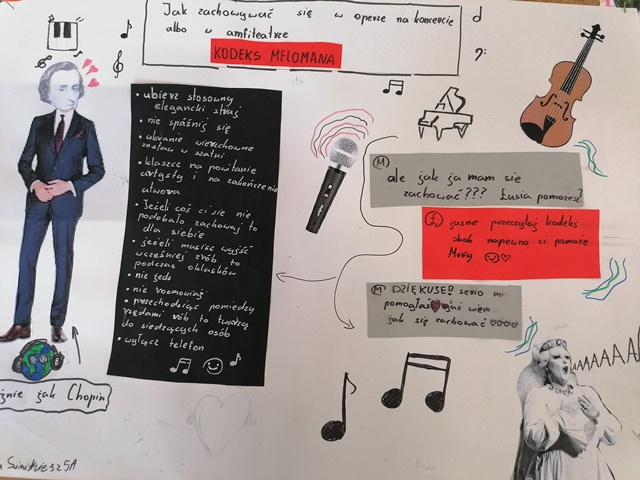 Jak zachowywać się w operze na koncercie
albo w amfiteatrze
KODEKS MELOMANA
• ubierz stosowny
elegancki strój
• nie spóźnij się
• ubranie wierzchowne
zostaw w szatni
• klaszcz na powitanie
artysty i na zakończenie
utworu
• Jeżeli coś ci się nie
podobało zachowaj to
dla siebie
• jeżeli musisz wyjść
wcześniej zrób to
podczas oklasków
• nie jedz
• nie rozmawiaj
• przechodząc pomiędzy
rzędami rób to twarzą
do siedzących osób
• wyłącz telefon
M ale jak ja mam się
zachować??? Łusia pomożesz?
Ł jasne przeczytaj kodeks
obok napewno ci pomoże
M DZIĘKUJĘ! serio
jak się zachować
AAAAAAA
źnie jak Chopin
5A